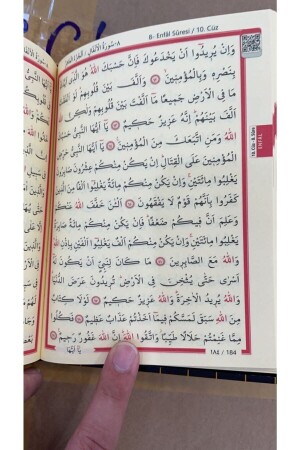 ٨-سُورَةُ الْأَنْفَالِ / الْجُزْءُ الْعَاشِرُ
8- Enfâl Sûresi / 10. Cüz
وَاِنْ يُرٖيدُٓوا اَنْ يَخْدَعُوكَ فَاِنَّ حَسْبَكَ اللّٰهُ هُوَ الَّذٖٓي اَيَّدَكَ
بِنَصْرِهٖ وَبِالْمُؤْمِنٖينَ ﴿٦٢﴾ وَاَلَّفَ بَيْنَ قُلُوبِهِمْ لَوْ اَنْفَقْتَ
مَا فِي الْاَرْضِ جَمٖيعًا مَٓا اَلَّفْتَ بَيْنَ قُلُوبِهِمْ وَلٰكِنَّ اللّٰهَ
اَلَّفَ بَيْنَهُمْ اِنَّهُ عَزٖيزٌ حَكٖيمٌ ﴿٦٣﴾ يَٓا اَيُّهَا النَّبِيُّ حَسْبُكَ
اللّٰهُ وَمَنِ اتَّبَعَكَ مِنَ الْمُؤْمِنٖينَ ﴿٦٤﴾ يَٓا اَيُّهَا النَّبِيُّ حَرِّضِ
الْمُؤْمِنٖينَ عَلَى الْقِتَالِ اِنْ يَكُنْ مِنْكُمْ عِشْرُونَ صَابِرُونَ
يَغْلِبُوا مِائَتَيْنِ وَاِنْ يَكُنْ مِنْكُمْ مِائَةٌ يَغْلِبُٓوا اَلْفًا مِنَ الَّذٖينَ
كَفَرُوا بِاَنَّهُمْ قَوْمٌ لَا يَفْقَهُونَ ﴿٦٥﴾ اَلْـٰٔنَ خَفَّفَ اللّٰهُ عَنْكُمْ
وَعَلِمَ اَنَّ فٖيكُمْ ضَعْفًا فَاِنْ يَكُنْ مِنْكُمْ مِائَةٌ صَابِرَةٌ
يَغْلِبُوا مِائَتَيْنِ وَاِنْ يَكُنْ مِنْكُمْ اَلْفٌ يَغْلِبُٓوا اَلْفَيْنِ بِاِذْنِ اللّٰهِ
وَاللّٰهُ مَعَ الصَّابِرٖينَ ﴿٦٦﴾ مَا كَانَ لِنَبِيٍّ اَنْ يَكُونَ لَهُٓ
اَسْرٰى حَتّٰى يُثْخِنَ فِي الْاَرْضِ تُرٖيدُونَ عَرَضَ الدُّنْيَا
وَاللّٰهُ يُرٖيدُ الْاٰخِرَةَ وَاللّٰهُ عَزٖيزٌ حَكٖيمٌ ﴿٦٧﴾ لَوْلَا كِتَابٌ
مِنَ اللّٰهِ سَبَقَ لَمَسَّكُمْ فٖيمَٓا اَخَذْتُمْ عَذَابٌ عَظٖيمٌ ﴿٦٨﴾ فَكُلُوا
مِمَّا غَنِمْتُمْ حَلَالًا طَيِّبًا وَاتَّقُوا اللّٰهَ اِنَّ اللّٰهَ غَفُورٌ رَحٖيمٌ ﴿٦٩﴾
يَٓا اَيُّهَا
١٨٤ / 184
ENFÂL